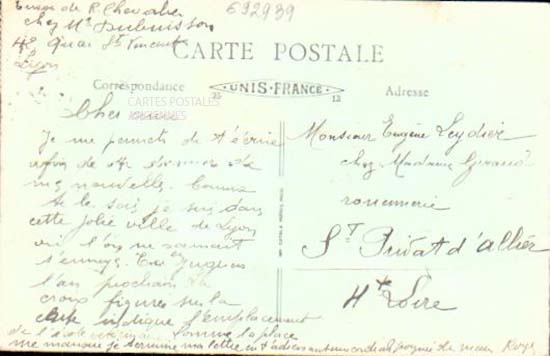 Envoi de R. Chevalier
chez Mr Dubuisson
42 Quai St Vincent
Lyon
692939
CARTE POSTALE
Correspondance
25 UNIS-FRANCE 13
Adresse
CARTES POSTALES
Cher
Je me permets de t'écrire
afin de te donner de
mes nouvelles. Comme
tu le sais je suis dans
cette jolie ville de Lyon
où l'on ne saurait
s'ennuyer.
l'an prochain la
croix figurée sur la
carte indique l'emplacement
de l'école vétérinaire Comme la place
me manque je termine ma lettre en t'adressant une cordiale poignée de main
Monsieur Eugène Leydier
chez Madame Giraud
St Privat d'allier
Hte Loire